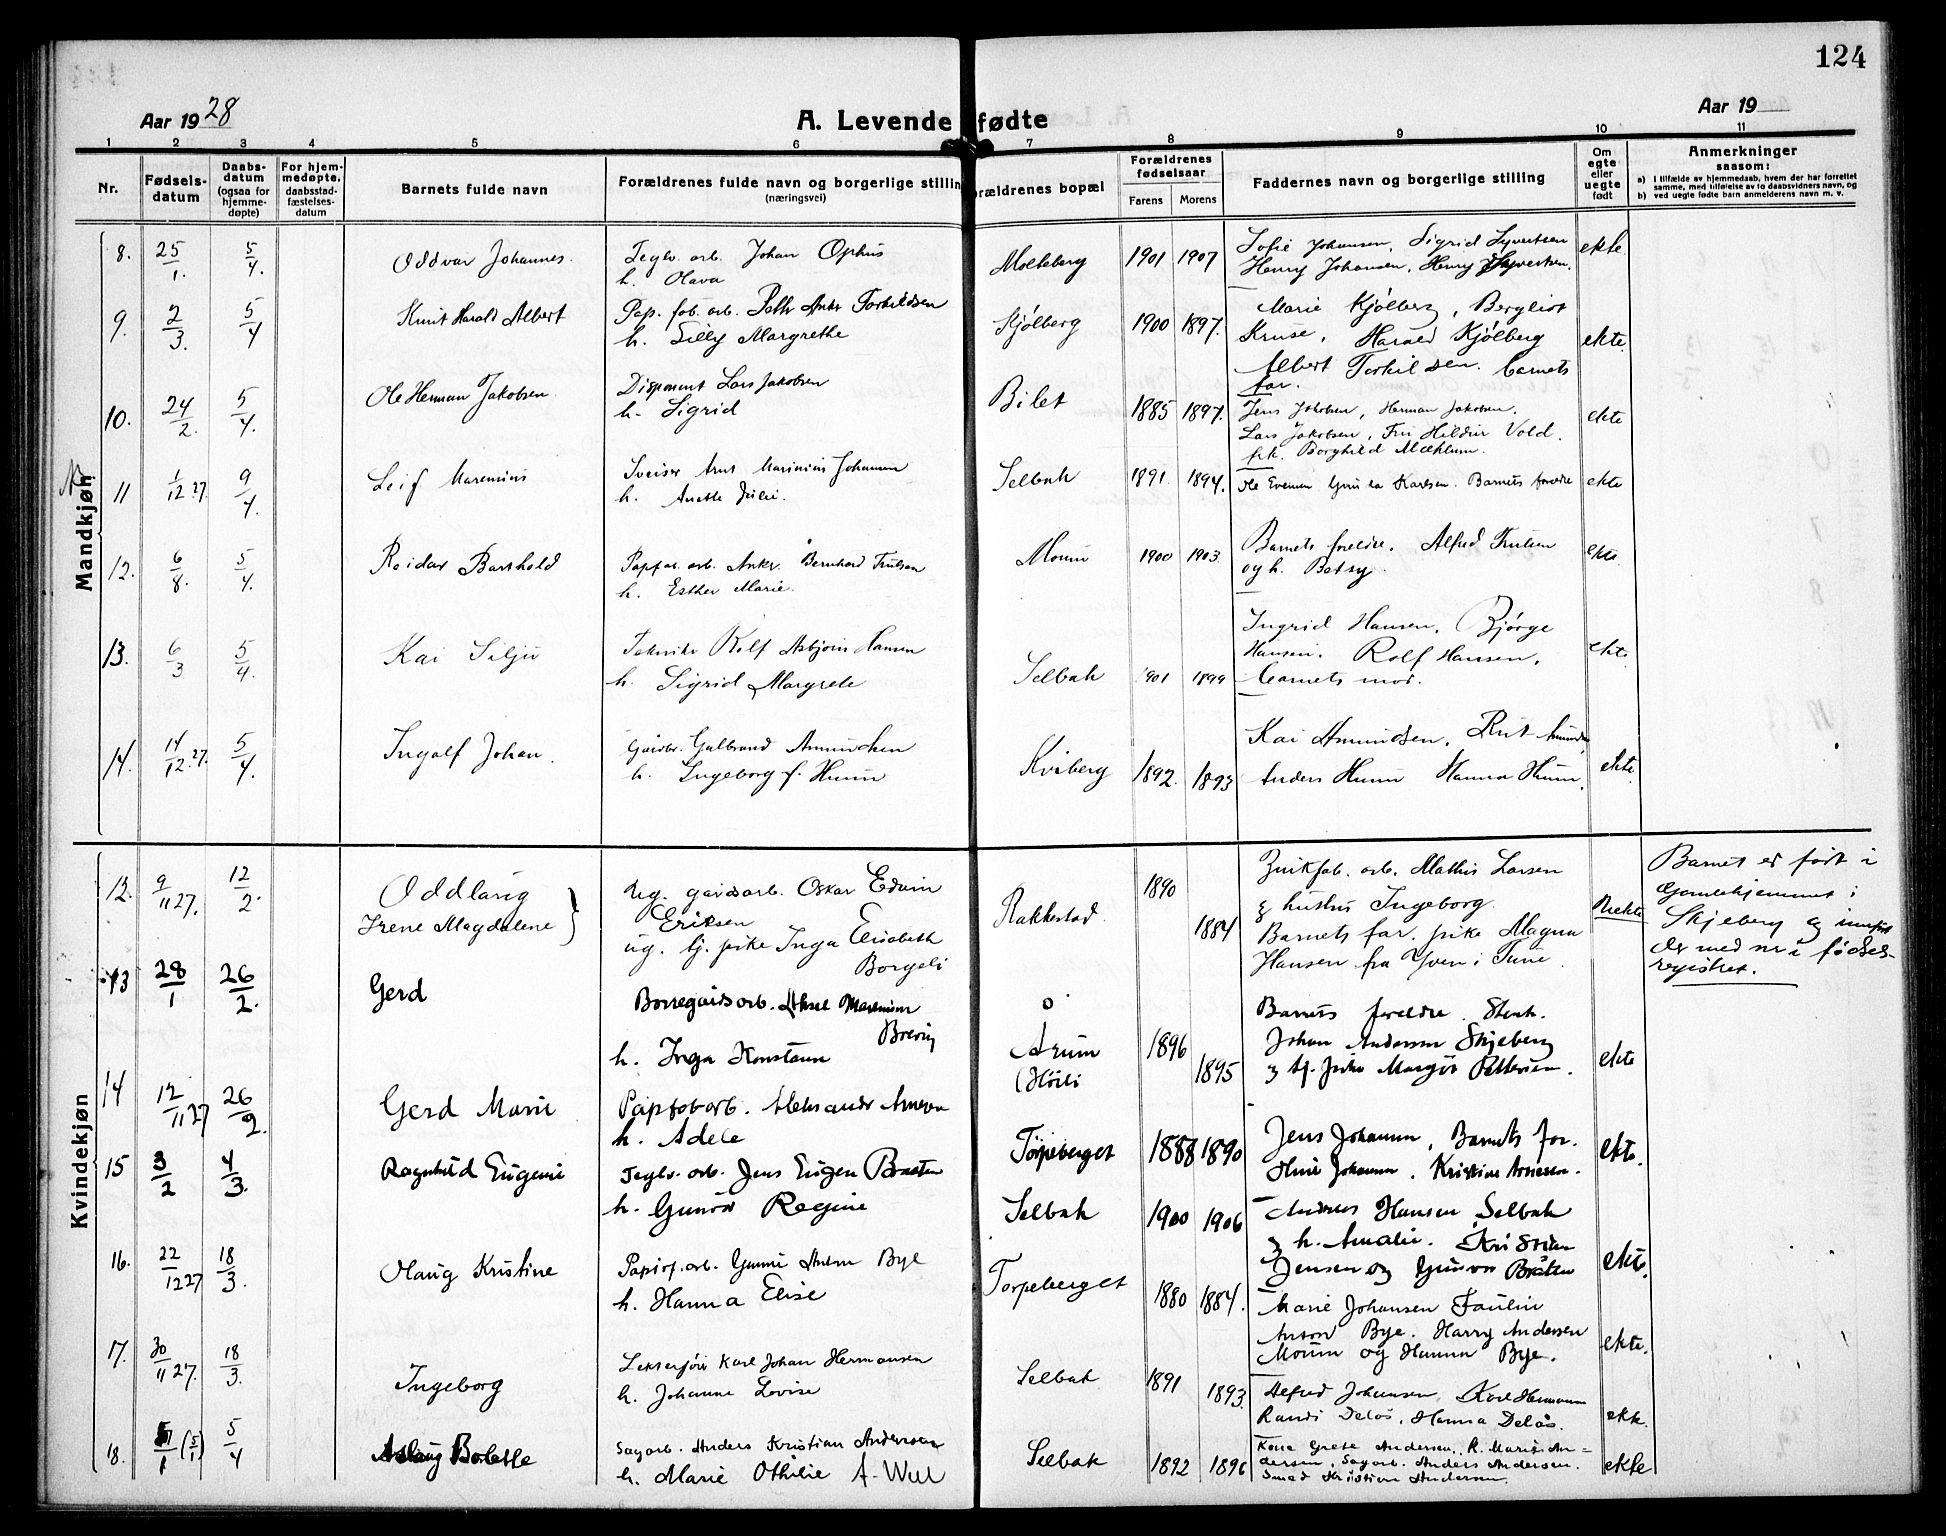 124
Aar 1928
A. Levende fødte
Aar 19
1 2 3 4 5 6 7 8 9 10 11
Nr.
Fødsels-
datum
Daabs-
datum
(ogsaa for
hjemme-
døpte)
For hjem-
medøpte,
daabsstad-
fæstelses-
datum
Barnets fulde navn
Forældrenes fulde navn og borgerlige stilling
(næringsvei)
Forældrenes bopæl
Forældrenes
fødselsaar
Farens
Morens
Faddernes navn og borgerlige stilling
Om
egte
eller
uegte
født
Anmerkninger
saasom:
a) I tilfælde av hjemmedaab, hvem der har forrettet
samme, med tilføielse av to daabsvidners navn, og
b) ved uegte fødte barn anmelderens navn m. v.
Mandkjøn
8. 25/1. 5/4. Oddvar Johannes. Teglv. arb. Johan Ophus
h. Olava
Molteberg 1901 1907 Sofie Johansen, Sigrid Syvertsen
Henry Johansen, Henry Syvertsen.
ekte
9. 2/3. 5/4 Knut Harald Albert Pap. fab. arb. Anker Torkildsen
h. Lilly Margrethe
Kjølberg 1900 1897. Marie Kjølberg, Bergliot
Kruse, Harald Kjølberg
Albert Torkildsen. barnets
far.
ekte.
10. 24/2. 5/4. Ole Herman Jakobsen Disponent Lars Jakobsen
h. Sigrid
Bilet 1885 1897. Jens Jakobsen, Herman Jakobsen.
Lars Jakobsen, Fru Hildur Vold.
frk. Borghild Mæhlum.
ekte
11 1/12 27. 9/4. Leif Marenius Sveiser Arnt Marinius Johansen
h. Anette Julie.
Selbak 1891. 1894. Ole Evensen Karlsen. Barnets forældre ekte
12. 6/8. 5/4. Reidar Barthold Papfar. arb. Anker Bernhard Trulsen
h. Esther Marie.
Moum 1900 1903. Barnets foreldre. Alfred Trulsen
og h. Betsy.
ekte
13. 6/3 5/4. Kai Silju Tekniker Rolf Asbjørn Hansen
h. Sigrid Margrete
Selbak 1901 1899 Ingrid Hansen, Bjørge
Hansen. Rolf Hansen,
barnets mor.
ekte
14. 14/12. 27. 5/4. Ingolf Johan. Gaardbr. Gulbrand Amundsen
h. Ingeborg f. Hunn
Kviberg 1892. 1893 Kai Amundsen, Rut Amundsen
Anders Hunn Hanna Hunn.
ekte
Kvindekjøn
12. 9/11 27. 12/2. Oddlaug
Irene Magdalene
Ug. gaardsarb. Oskar Edvin
Eriksen
ug. tj. pike Inga Elisabeth
Borgeli
Rakkestad 1890 1884 arb. Mathis Larsen
& hustru Ingeborg.
Barnets far. pike Magna
Hansen fra Yven i Tune.
Uekte
Barnet er født i
Gamlehjemmet i
Skjeberg og innført
der med nr i fødsels-
registret.
13 28/1 26/2. Gerd Borregaardsarb. Aksel Marenius
Brevig
h. Inga Konstanse
Årum
(Høili
1896 1895 Barnets foreldre. Stenh.
Johan Andersen Skjeberg
& tj. pike Margit Pettersen.
ekte
14 12/11 27 26/2. Gerd Marie Papfabarb. Aleksander Arnesen
h. Adele
Torpeberget 1888 1890 Jens Johansen, Barnets for.
Johansen, Kristine Arnesen.
ekte.
15 3/2 4/3. Ragnhild Eugenie Teglv. arb. Jens Eugen Braaten
h. Gunvor Regine
Selbak 1900 1906 Andreas Hansen Selbak
& h. Amalie. Kristian
Jensen og Gunvor Bråten
ekte.
16. 22/12 27 18/3. Olaug Kristine Papirf. arb. Bye
h. Hanna Elise
Torpeberget 1880 1884. Marie Johansen
Anton Bye. Harry Andersen
Moum og Hanna Bye.
ekte.
17. 30/11 27. 18/3. Ingeborg Karl Johan Hermansen
h. Johanne Lovise
Selbak 1891 1893. Alfred Johansen, Karl Hermansen
Randi Delås, Hanna Delås.
ekte.
18. 1 (5/1) 5/4 Aslaug Bolette Sagarb. Anders Kristian Andersen
h. Marie Othilie
Selbak 1892 1896 Grete Andersen, R. Marie An=
dersen, Sagarb. Anders Andersen.
Smed Kristian Andersen.
ekte